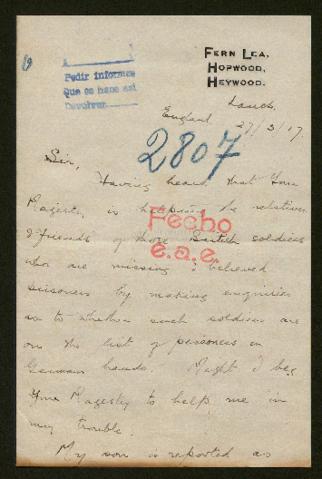 Pedir informes
Que se hace así
Devolver
FERN LEA,
HOPWOOD,
HEYWOOD.
Lancs.
England 27/3/17.
2807
Sir,
Having heard that Your
Majesty is helping the relatives
& friends of those British soldiers
who are missing & believed
prisoners by making enquiries
as to whether such soldiers are
on the list of prisoners in
German hands. Might I beg
Your Majesty to help me in
my trouble.
My son is reported as
Fecho
e.a.e.